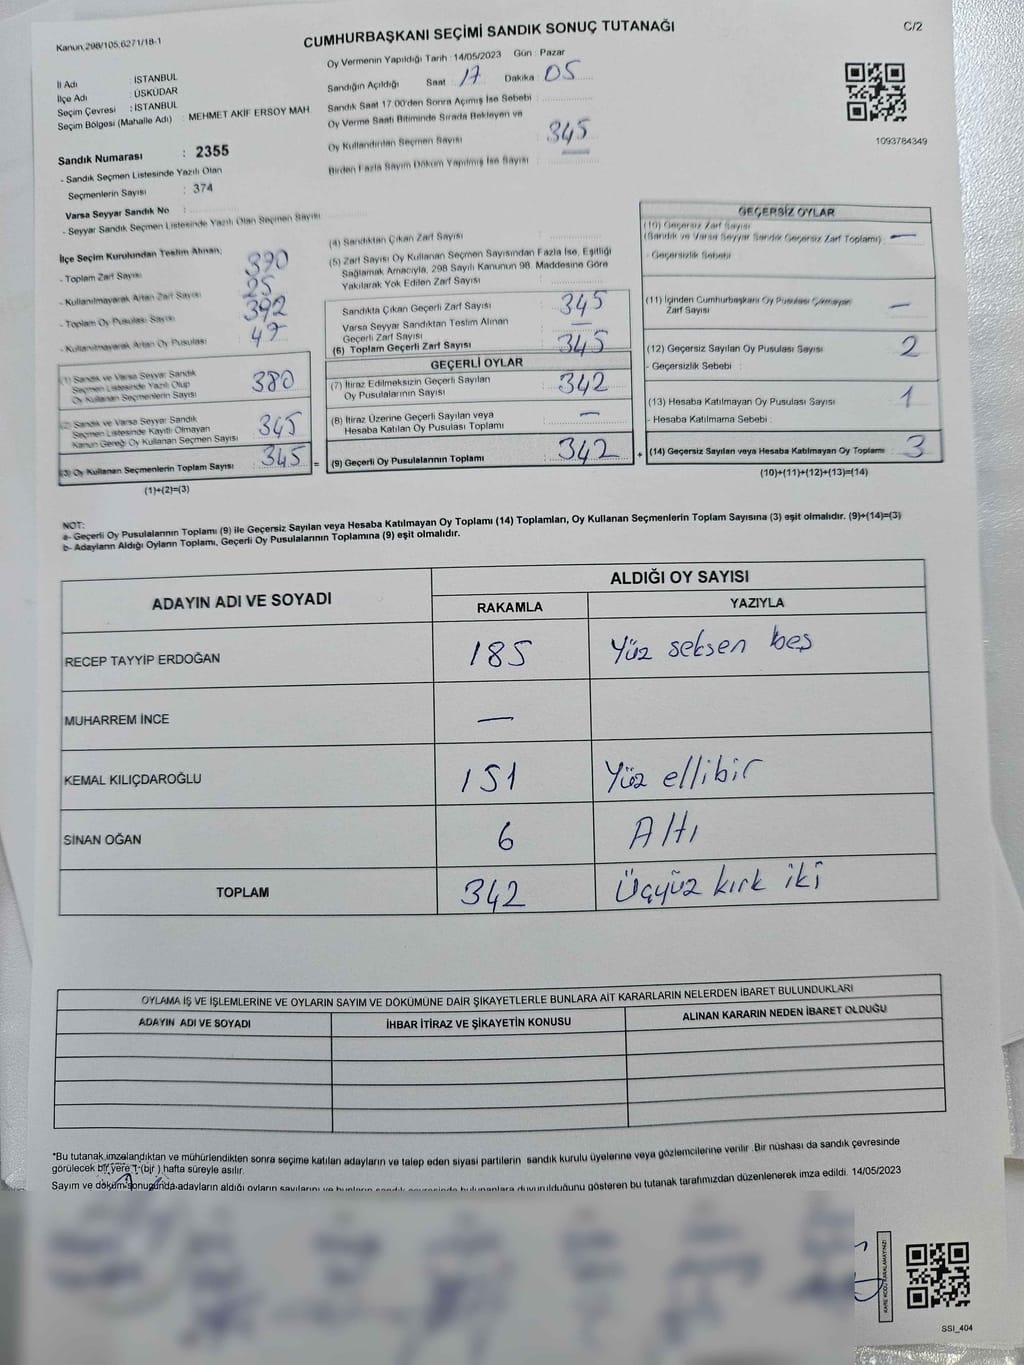 Kanun,298/105,6271/18-1
CUMHURBAŞKANI SEÇİMİ SANDIK SONUÇ TUTANAĞI
C/2
Oy Vermenin Yapıldığı Tarih : 14/05/2023 Gün : Pazar
İl Adı : İSTANBUL
İlçe Adı : ÜSKÜDAR
Seçim Çevresi : İSTANBUL
Seçim Bölgesi (Mahalle Adı) : MEHMET AKİF ERSOY MAH.
Sandığın Açıldığı Saat : 17 Dakika : 05
Sandık Saat 17.00'den Sonra Açılmış İse Sebebi :
Oy Verme Saati Bitiminde Sırada Bekleyen ve
Oy Kullandırılan Seçmen Sayısı : 345
Birden Fazla Sayım Döküm Yapılmış İse Sayısı :
1093784349
Sandık Numarası : 2355
- Sandık Seçmen Listesinde Yazılı Olan
Seçmenlerin Sayısı : 374
Varsa Seyyar Sandık No :
- Seyyar Sandık Seçmen Listesinde Yazılı Olan Seçmen Sayısı
İlçe Seçim Kurulundan Teslim Alınan;
- Toplam Zarf Sayısı 390
- Kullanılmayarak Artan Zarf Sayısı 25
- Toplam Oy Pusulası Sayısı 392
- Kullanılmayarak Artan Oy Pusulası 47
(1) Sandık ve Varsa Seyyar Sandık
Seçmen Listesinde Yazılı Olup
Oy Kullanan Seçmenlerin Sayısı 380
(2) Sandık ve Varsa Seyyar Sandık
Seçmen Listesinde Kayıtlı Olmayan
Kanun Gereği Oy Kullanan Seçmen Sayısı 345
(3) Oy Kullanan Seçmenlerin Toplam Sayısı 345 =
(1)+(2)=(3)
(4) Sandıktan Çıkan Zarf Sayısı :
(5) Zarf Sayısı Oy Kullanan Seçmen Sayısından Fazla İse, Eşitliği
Sağlamak Amacıyla, 298 Sayılı Kanunun 98. Maddesine Göre
Yakılarak Yok Edilen Zarf Sayısı :
Sandıkta Çıkan Geçerli Zarf Sayısı : 345
Varsa Seyyar Sandıktan Teslim Alınan
Geçerli Zarf Sayısı : —
(6) Toplam Geçerli Zarf Sayısı : 345
GEÇERLİ OYLAR
(7) İtiraz Edilmeksizin Geçerli Sayılan
Oy Pusulalarının Sayısı : 342
(8) İtiraz Üzerine Geçerli Sayılan veya
Hesaba Katılan Oy Pusulası Toplamı : —
(9) Geçerli Oy Pusulalarının Toplamı : 342 +
GEÇERSİZ OYLAR
(10) Geçersiz Zarf Sayısı
(Sandık ve Varsa Seyyar Sandık Geçersiz Zarf Toplamı) : —
- Geçersizlik Sebebi
(11) İçinden Cumhurbaşkanı Oy Pusulası Çıkmayan
Zarf Sayısı : —
(12) Geçersiz Sayılan Oy Pusulası Sayısı : 2
- Geçersizlik Sebebi :
(13) Hesaba Katılmayan Oy Pusulası Sayısı : 1
- Hesaba Katılmama Sebebi :
(14) Geçersiz Sayılan veya Hesaba Katılmayan Oy Toplamı : 3
(10)+(11)+(12)+(13)=(14)
NOT:
a- Geçerli Oy Pusulalarının Toplamı (9) ile Geçersiz Sayılan veya Hesaba Katılmayan Oy Toplamı (14) Toplamları, Oy Kullanan Seçmenlerin Toplam Sayısına (3) eşit olmalıdır. (9)+(14)=(3)
b- Adayların Aldığı Oyların Toplamı, Geçerli Oy Pusulalarının Toplamına (9) eşit olmalıdır.
ADAYIN ADI VE SOYADI
ALDIĞI OY SAYISI
RAKAMLA YAZIYLA
RECEP TAYYİP ERDOĞAN 185 Yüz seksen beş
MUHARREM İNCE —
KEMAL KILIÇDAROĞLU 151 Yüz ellibir
SİNAN OĞAN 6 Altı
TOPLAM 342 Üçyüz kırk iki
OYLAMA İŞ VE İŞLEMLERİNE VE OYLARIN SAYIM VE DÖKÜMÜNE DAİR ŞİKAYETLERLE BUNLARA AİT KARARLARIN NELERDEN İBARET BULUNDUKLARI
ADAYIN ADI VE SOYADI İHBAR İTİRAZ VE ŞİKAYETİN KONUSU ALINAN KARARIN NEDEN İBARET OLDUĞU
*Bu tutanak,imzalandıktan ve mühürlendikten sonra seçime katılan adayların ve talep eden siyasi partilerin sandık kurulu üyelerine veya gözlemcilerine verilir. Bir nüshası da sandık çevresinde
görülecek bir yere 1 (bir ) hafta süreyle asılır.
Sayım ve döküm sonucunda adayların aldığı oyların sayılarını ve bunların sandık çevresinde bulunanlara duyurulduğunu gösteren bu tutanak tarafımızdan düzenlenerek imza edildi. 14/05/2023
SSI_404